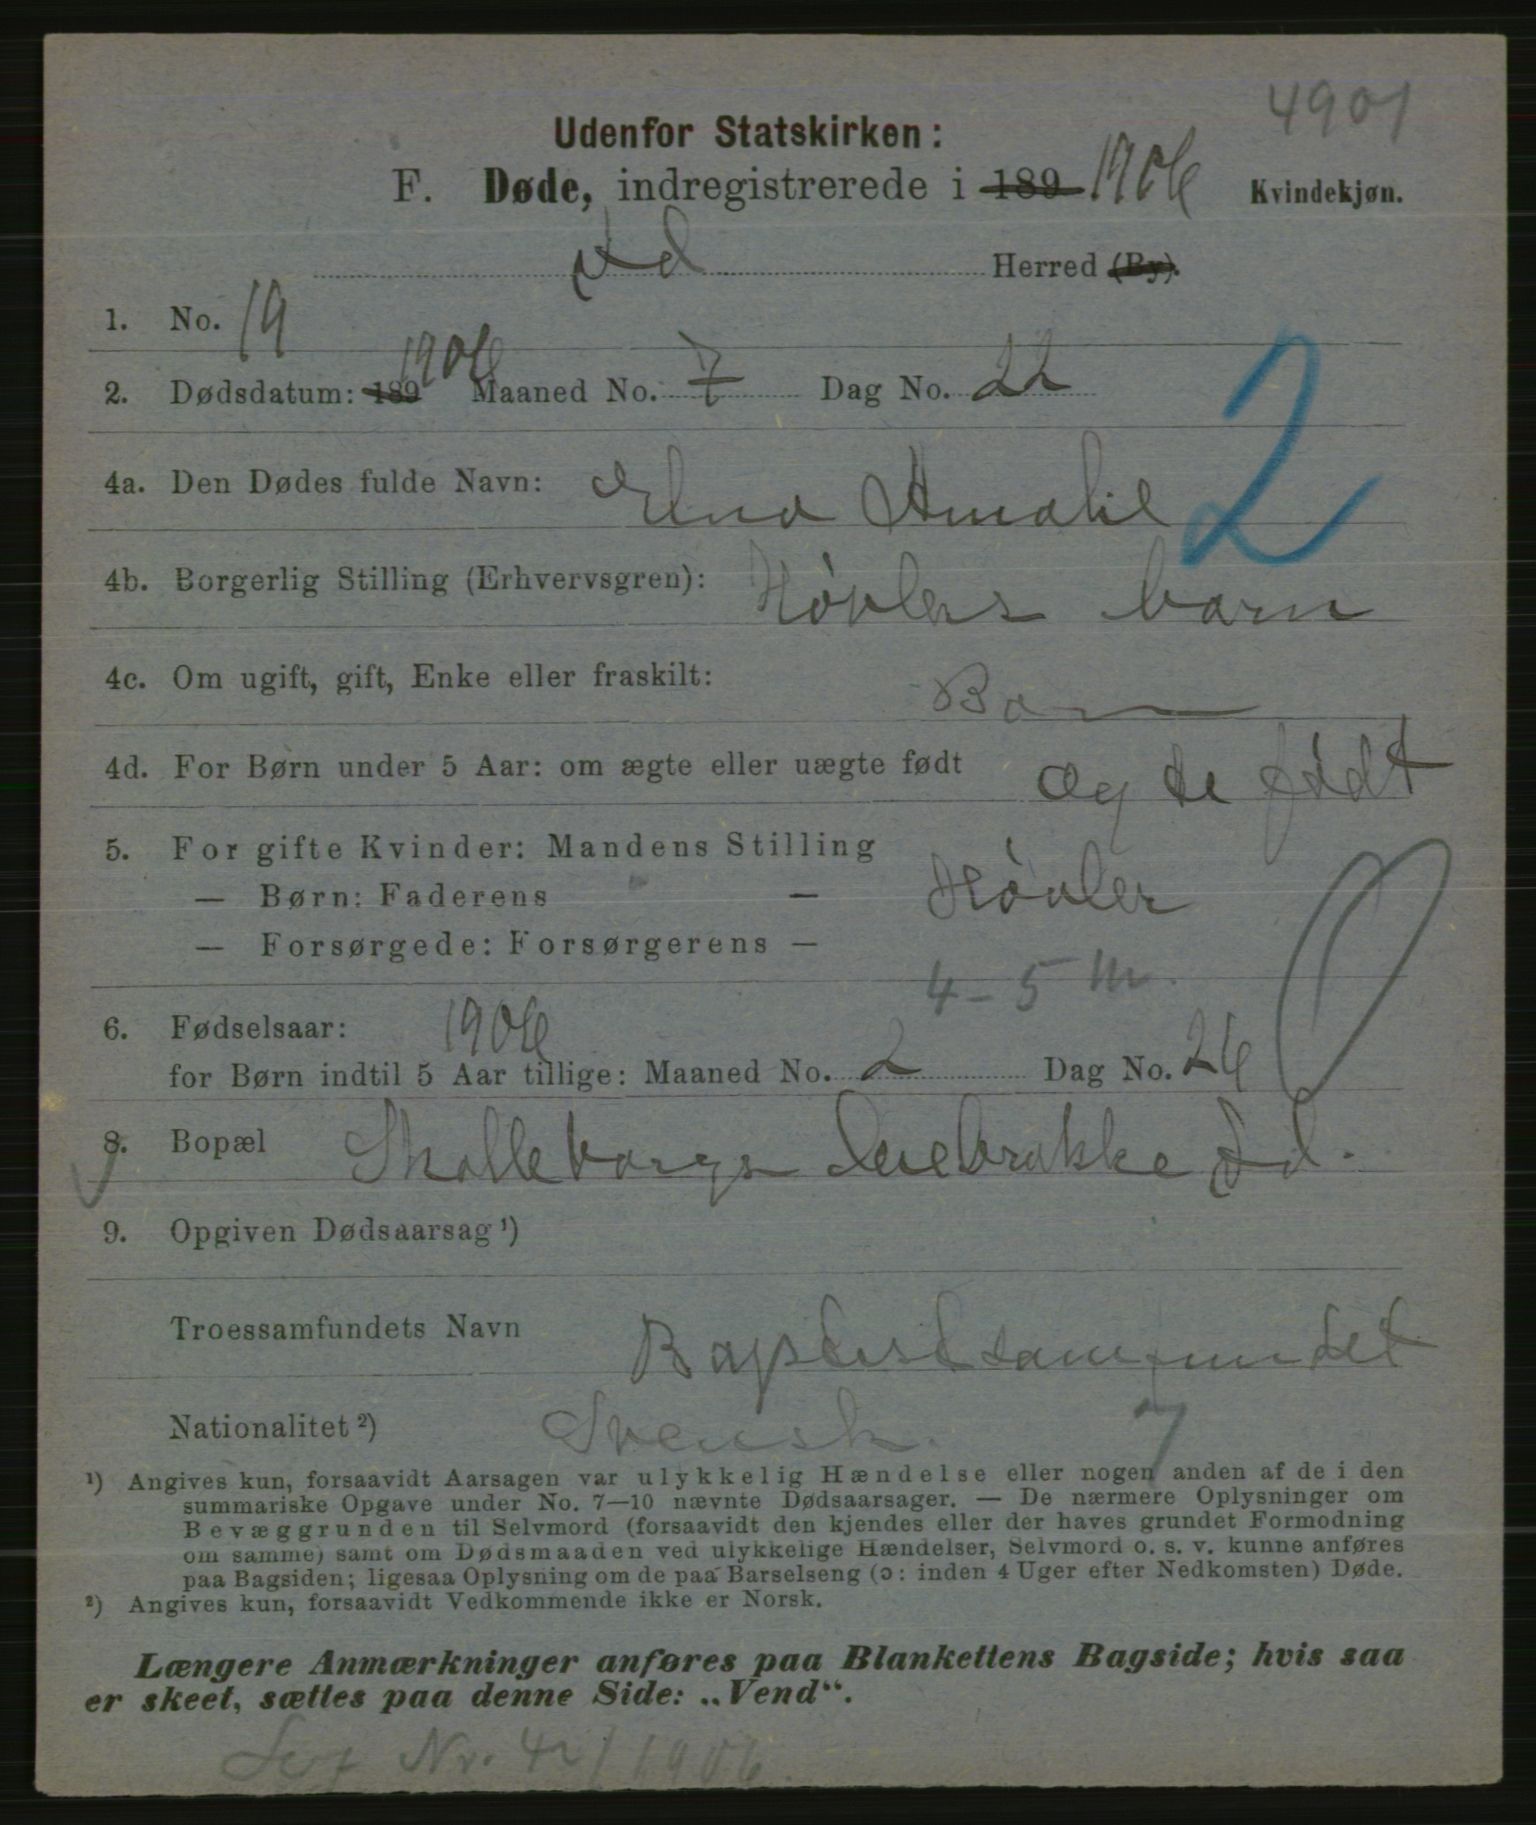 4901
Udenfor Statskirken:
F. Døde, indregistrerede i 189 1906 Kvindekjøn.
Id Herred (By).
1. No. 19
2. Dødsdatum: 189 1906 Maaned No. 7 Dag No. 22
2
4a. Den Dødes fulde Navn: Elna Amalie
4b. Borgerlig Stilling (Erhvervsgren): Høvlers barn
4c. Om ugift, gift, Enke eller fraskilt: Barn
4d. For Børn under 5 Aar: om ægte eller uægte født ægte født
5. For gifte Kvinder: Mandens Stilling
— Børn: Faderens — Høvler
— Forsørgede: Forsørgerens —
4-5 m.
6. Fødselsaar: 1906
for Børn indtil 5 Aar tillige: Maaned No. 2 Dag No. 26
8. Bopæl Skolleborgs Id.
9. Opgiven Dødsaarsag ¹)
Troessamfundets Navn Baptistsamfundet
Nationalitet ²) Svensk. 7
¹) Angives kun, forsaavidt Aarsagen var ulykkelig Hændelse eller nogen anden af de i den
summariske Opgave under No. 7—10 nævnte Dødsaarsager. — De nærmere Oplysninger om
Bevæggrunden til Selvmord (forsaavidt den kjendes eller der haves grundet Formodning
om samme) samt om Dødsmaaden ved ulykkelige Hændelser, Selvmord o. s. v. kunne anføres
paa Bagsiden; ligesaa Oplysning om de paa Barselseng (ɔ: inden 4 Uger efter Nedkomsten) Døde.
²) Angives kun, forsaavidt Vedkommende ikke er Norsk.
Længere Anmærkninger anføres paa Blankettens Bagside; hvis saa
er skeet, sættes paa denne Side: „Vend“.
Nr. 42/1906.